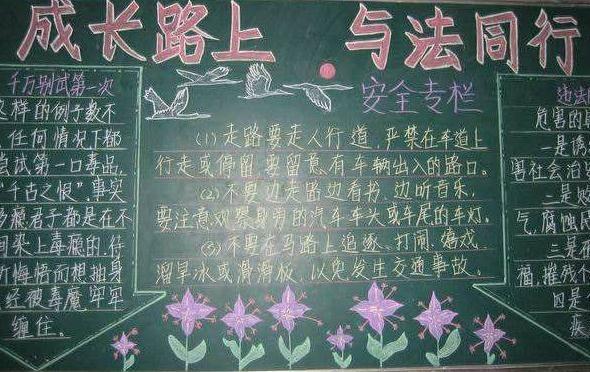 成长路上 与法同行
千万别试第一次
这样的例子数不
任何情况下都
尝试第一口毒品,
"千古之恨",事实
多瘾君子都是在不
间染上毒瘾的.什
忏悔悟而想抽身
经被毒魔牢牢
缠住。
安全专栏
(1)走路要走人行道,严禁在车道上
行走或停留,要留意有车辆出入的路口。
(2)不要边走路边看书、边听音乐,
要注意观察身旁的汽车车头或车尾的车灯。
(3)不要在马路上追逐、打闹、嬉戏
溜旱冰或滑滑板,以免发生交通事故。
违法
危害的
一是诱
害社会治
二是败
气,腐蚀
三是破
福,摧残个
四是
疾